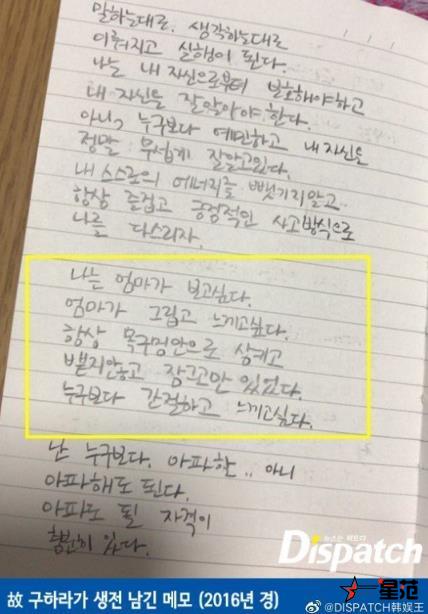 말하는대로. 생각하는대로
이뤄지고 실행이 된다.
나는 내 자신으로부터 보호해야하고
내 자신을 잘알아야 한다.
아니, 누구보다 예민하고 내자신을
정말 무섭게 잘알고있다.
내 스스로의 에너지를 뺏기지않고
항상 즐겁고 긍정적인 사고방식으로
나를 다스리자.
나는 엄마가 보고싶다.
엄마가 그립고 느끼고싶다.
항상 목구멍안으로 삼키고
뱉지안놓고 잠그고만 있었다.
누구보다 간절하고 느끼고싶다.
난 누구보다. 아파한.. 아니
아파해도 된다.
아파도 될 자격이
충분히 있다.
뉴스는 팩트다
Dispatch
故 구하라가 생전 남긴 메모 (2016년 경)
一星范
@DISPATCH韩娱王